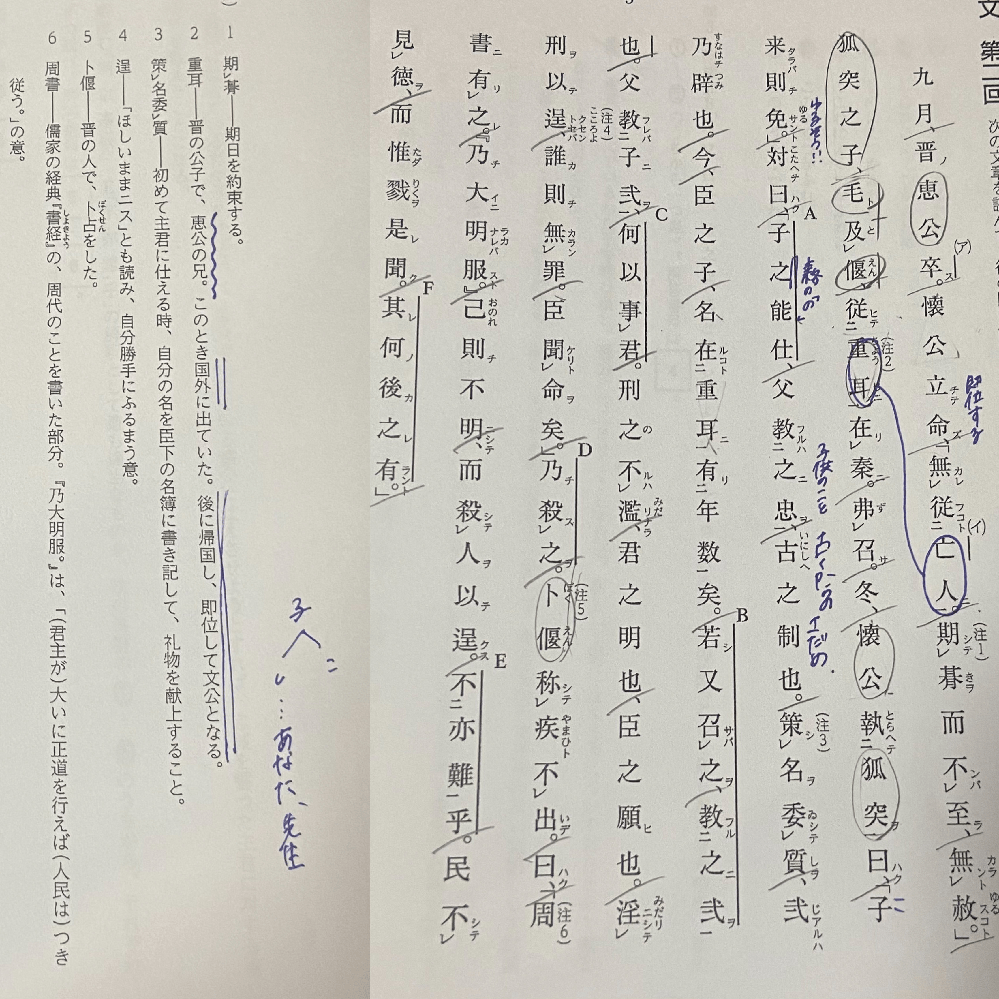 文 第二回
次の文章を読
九月、晋恵公卒。懐公立命、「無従亡人。期朞而不至、無赦。」
狐突之子、毛及偃、従重耳在秦。弗召。冬、懐公執狐突曰、「子
来則免。」対曰、「子之能仕、父教之忠、古之制也。策名委質、弐
乃辟也。今、臣之子、名在重耳有年数矣。若又召之、教之弐
也。父教子弐、何以事君。刑之不濫、君之明也、臣之願也。淫
刑以逞、誰則無罪。臣聞命矣。」乃殺之。卜偃称疾不出。曰、「周
書有之。『乃大明服。』己則不明、而殺人以逞。不亦難乎。民不
見徳、而惟戮是聞。其何後之有。」
(ア)
(イ)
A
B
C
D
E
F
(注1)
(注2)
(注3)
(注4)
(注5)
(注6)
即位する
ゆるそう!!
子供のこと
1 期朞――期日を約束する。
2 重耳――晋の公子で、恵公の兄。このとき国外に出ていた。後に帰国し、即位して文公となる。
3 策名委質――初めて主君に仕える時、自分の名を臣下の名簿に書き記して、礼物を献上すること。
4 逞――「ほしいままニス」とも読み、自分勝手にふるまう意。
5 卜偃――晋の人で、卜占をした。
6 周書――儒家の経典『書経』の、周代のことを書いた部分。『乃大明服。』は、「(君主が)大いに正道を行えば(人民は)つき
従う。」の意。
子
あなた、先生